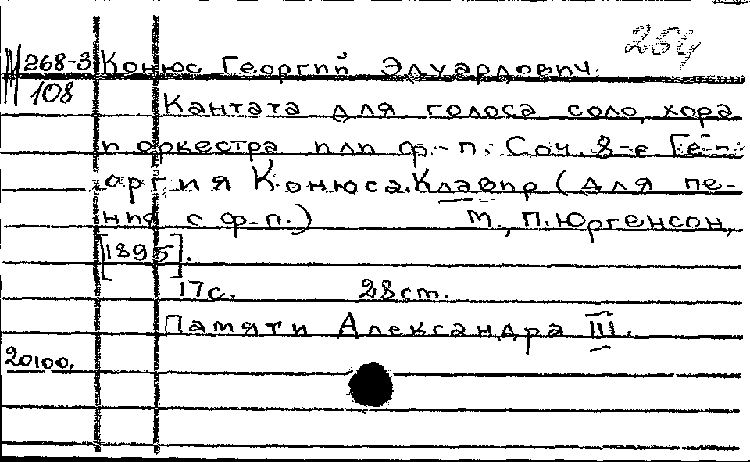 254
М 268-3 Конюс Георгий Эдуардович.
108
Кантата для голоса соло, хора
и оркестра или ф.-п. Соч. 8-е Ге-
оргия Конюса. Клавир (для пе-
ния с ф-п.) М., П. Юргенсон,
[1895].
17с. 28ст.
Памяти Александра III.
20100.